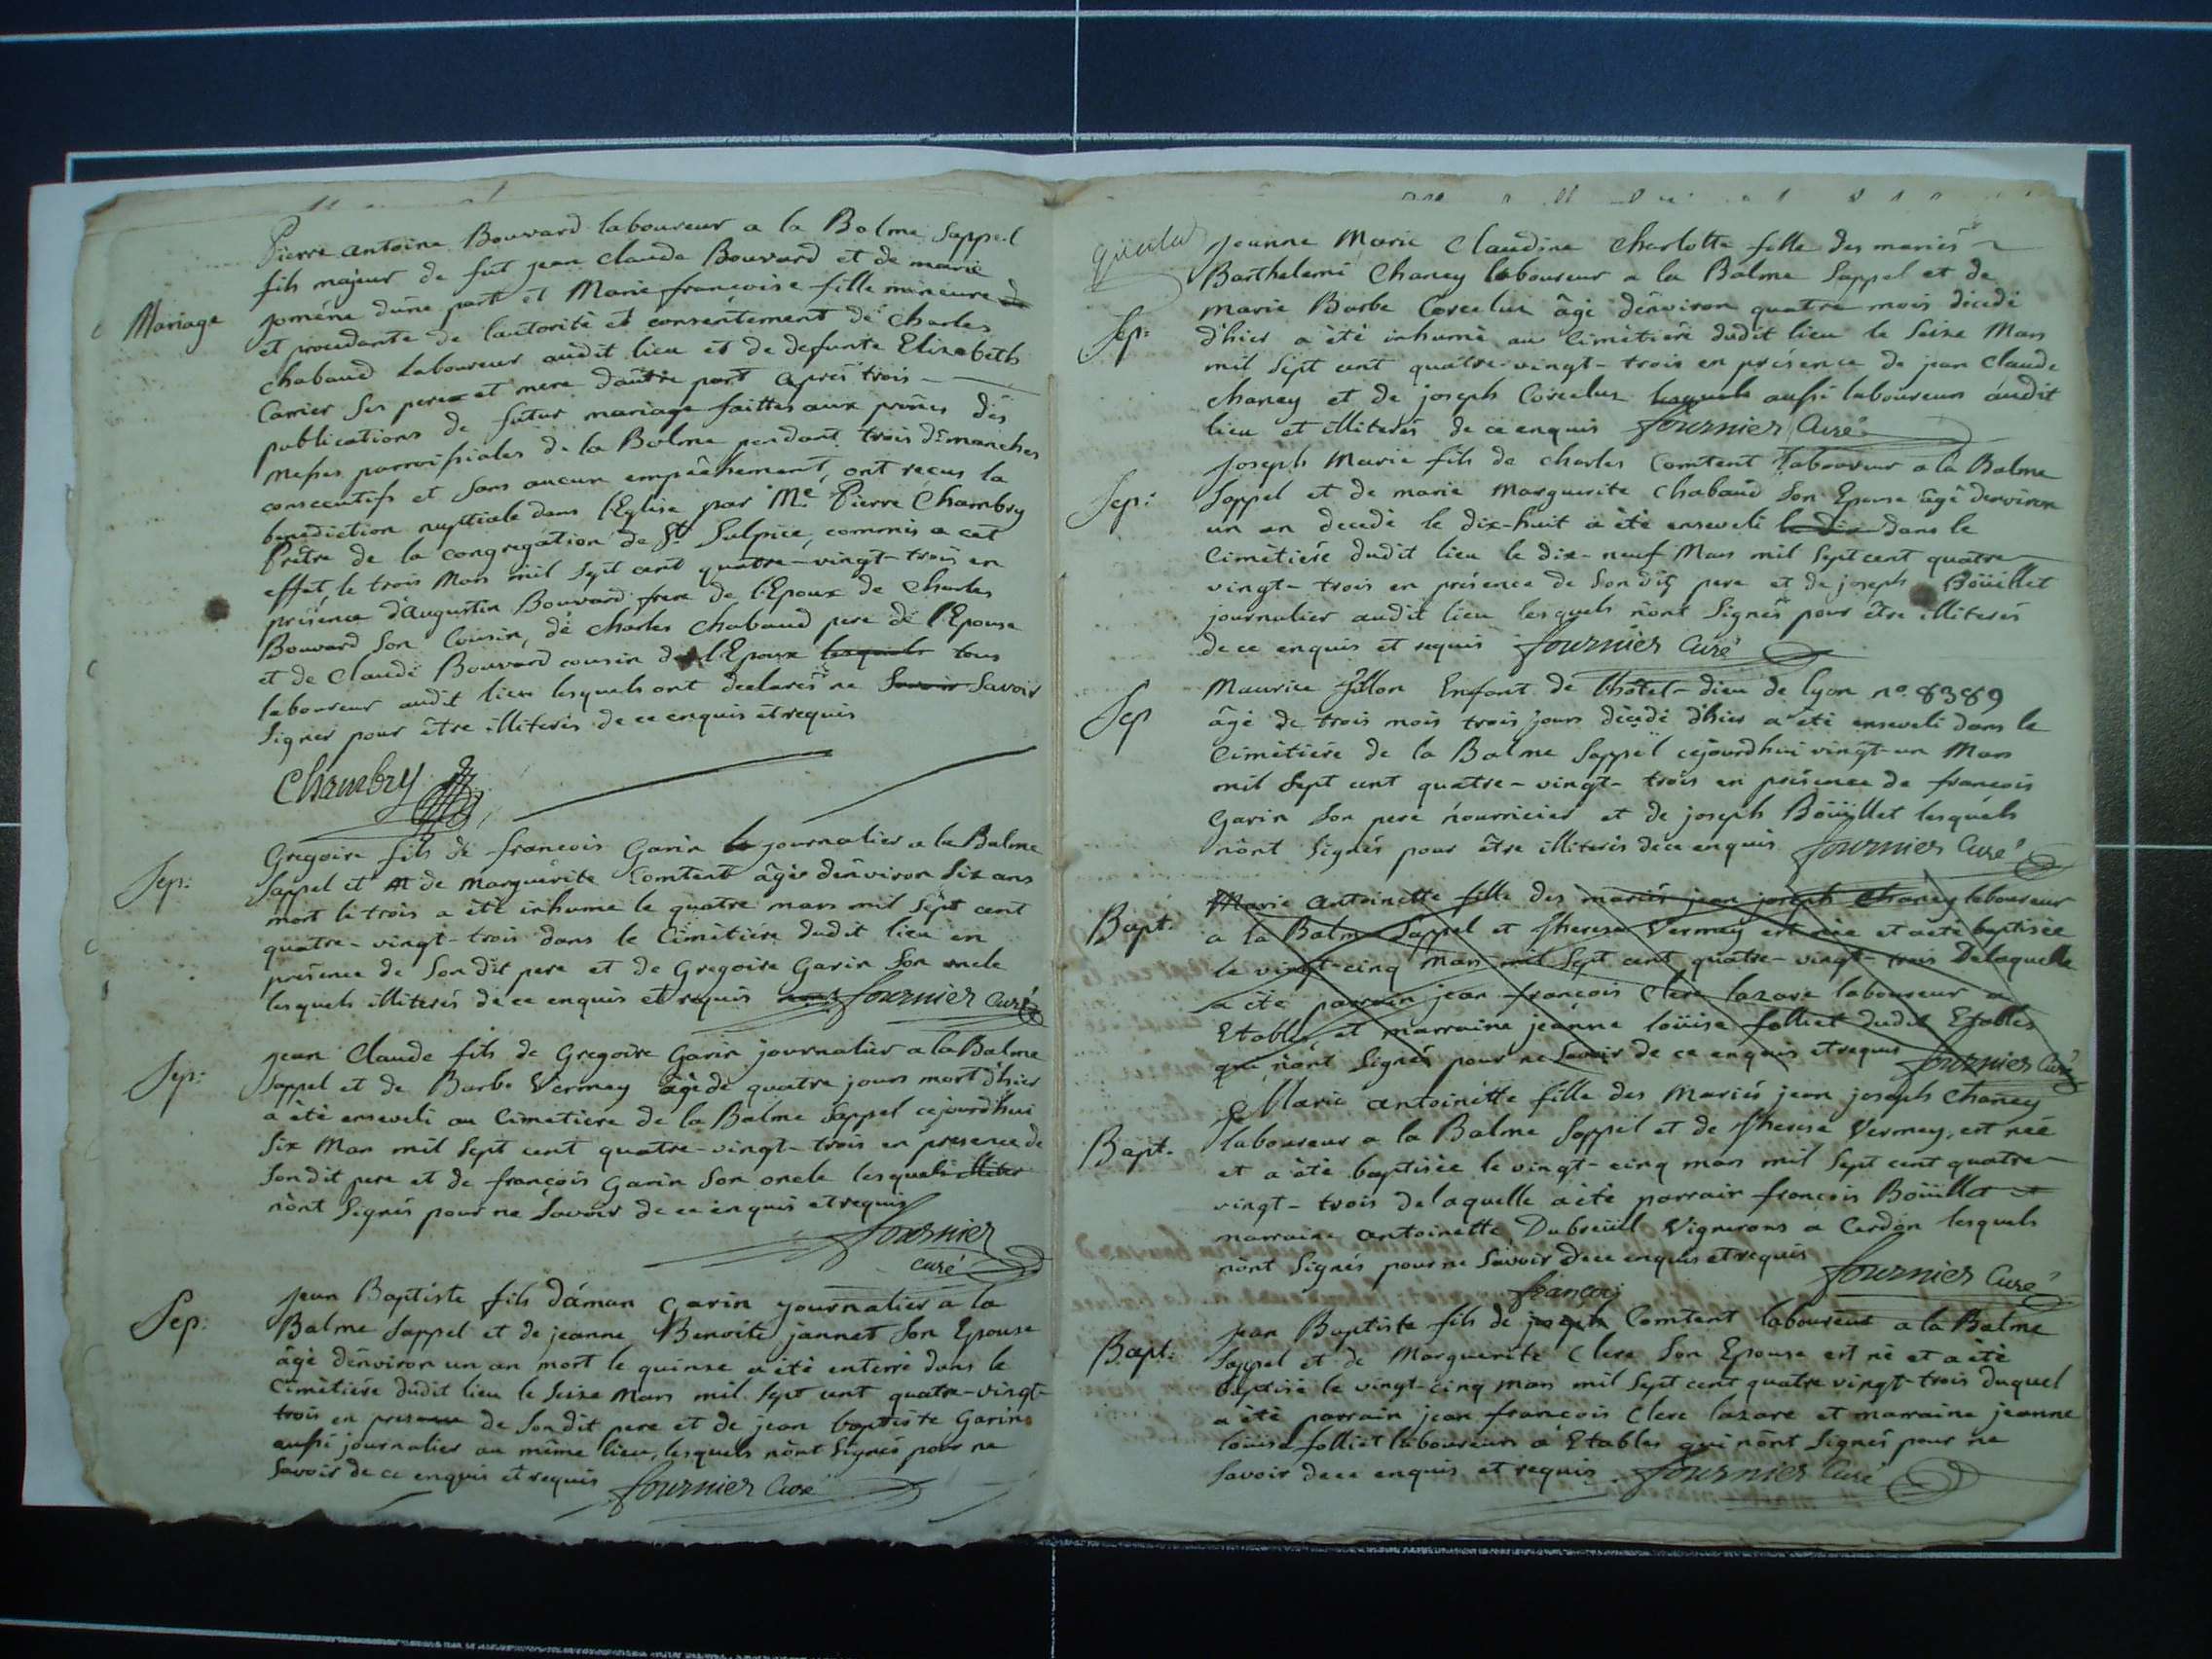 Pierre antoine Bouvard laboureur a la Balme Sappel
fils majeur de fut jean claude Bouvard et de marie
Mariage
joméne dune part et Marie françoise fille mineure de
et procedante de lautorité et consentement de charles
chabaud laboureur audit lieu et de defunte Elizabeth
Carrier Ses perex et mere dautre part apres trois
publications de futur mariage faittes aux prônes des
messes parroissiales de la Balme pendant trois dimanches
consecutifs et Sans aucun empêchement, ont recus la
benediction nuptiale dans l'Eglise par Me Pierre Chambry
Prêtre de la congregation de St Sulpice, commis a cet
effét, le trois Mars mil Sept cent quatre-vingt-trois en
présence d'augustin Bouvard frere de l'Epoux de Charles
Bouvard Son Cousin, de charles chabaud pere de l'Epouse
et de Claude Bouvard cousin de l'Epoux lesquels tous
laboureur audit lieu lesquels ont declarés ne Savoir Savoir
Signer pour être illiterés de ce enquis et requis
Chambry
Gregoire fils de françois Garin journalier a la Balme
Sep:
Sappel et de Marguérite Comtent âgée dénviron Six ans
mort le trois a été inhumé le quatre mars mil Sept cent
quatre-vingt-trois dans le Cimétiére dudit lieu en
présence de Son dit pere et de Gregoire Garin Son oncle
lesquels illiterés de ce enquis et requis fournier Curé
jean Claude fils de Gregoire Garin journalier a la Balme
Sep:
Sappel et de Barbe Vermey âgé de quatre jours mort d'hier
a été enseveli au Cimetiere de la Balme Sappel cejourd'hui
Six Mars mil Sept cent quatre-vingt-trois en presence de
Sondit pere et de françois Garin Son oncle lesquels illiter
nônt Signés pour ne Savoir de ce enquis et requis
fournier
curé
jean Baptiste fils dáman Garin journalier a la
Sep:
Balme Sappel et de jeanne Benoite jannet Son Epouse
âgé dénviron un an mort le quinze a été enterré dans le
Cimétiére dudit lieu le Seize Mars mil Sept cent quatre-vingt-
trois en presence de Sondit pere et de jean baptiste Garin
aussi journalier au même lieu, lesquels nônt Signés pour ne
Savoir de ce enquis et requis fournier Curé
jeanne Marie Claudine charlotte fille des mariés
Barthelemi Chaney laboureur a la Balme Sappel et de
marie Barbe Corcelux âgé dénviron quatre mois décedé
Sep:
d'hier a été inhumé au Cimétiere dudit lieu le Seize Mars
mil Sept cent quatre-vingt-trois en présence de jean claude
chaney et de joseph Corcelux lesquels aussi laboureurs audit
lieu et illiterés de ce enquis fournier Curé
joseph Marie fils de charles Comtent laboureur a la Balme
Sep:
Sappel et de marie Marguerite Chabaud Son Epouse âgé denviron
un an decedé le dix-huit a été enseveli le dix dans le
Cimétiére dudit lieu le dix-neuf Mars mil Sept cent quatre
vingt-trois en présence de Son dit pere et de joseph Boüillet
journalier audit lieu lesquels nônt Signés pour être illiterés
de ce enquis et requis fournier Curé
Maurice fillon Enfant de lhôtel-dieu de lyon no. 8389
Sep
âgé de trois mois trois jours décédé d'hier a été enseveli dans le
Cimétiére de la Balme Sappel cejourdhui vingt-un Mars
mil Sept cent quatre-vingt-trois en présence de françois
Garin Son pere nourricier et de joseph Boüillet lesquels
nônt Signés pour être illiterés de ce enquis fournier Curé
Marie antoinette fille des mariés jean joseph Chaney laboureur
Bapt.
a la Balme Sappel et therese Vermey est née et a été baptisée
le vingt-cinq mars mil Sept cent quatre-vingt-trois De laquelle
a été parrain jean françois Clerc lazare laboureur a
Etables, et marraine jeanne loüise folliet dudit Etables
qui nônt Signés pour ne Savoir de ce enquis et requis fournier Curé
Marie antoinette fille des Mariés jean joseph Chaney
Bapt.
laboureur a la Balme Sappel et de therese Vermey, est née
et a été baptisée le vingt-cinq mars mil Sept cent quatre
vingt-trois de laquelle a été parrain françois Boüillet et
marraine antoinette Dubreüil Vignerons a Cerdon lesquels
nônt Signés pour ne Savoir de ce enquis et requis
fournier Curé
françois
jean Baptiste fils de joseph Comtent laboureur a la Balme
Bapt:
Sappel et de Marguerite Clerc Son Epouse est né et a été
baptisé le vingt-cinq mars mil Sept cent quatre vingt-trois duquel
a été parrain jean françois Clerc lazare et marraine jeanne
loüise folliet laboureurs a Etables qui nônt Signés pour ne
Savoir de ce enquis et requis fournier Curé